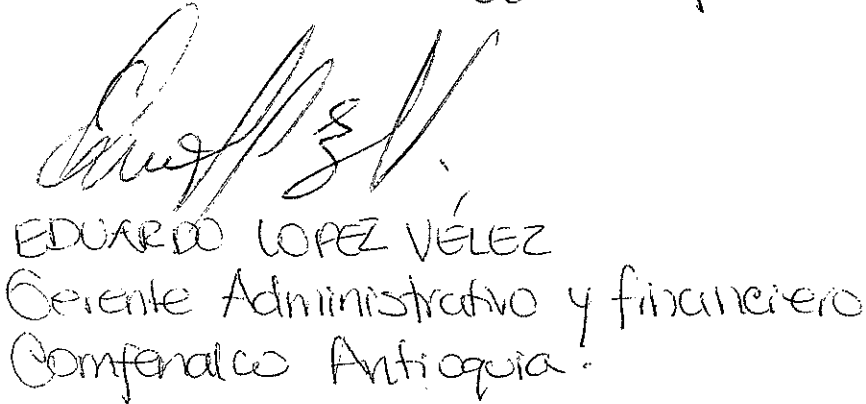 EDUARDO LOPEZ VÉLEZ
Gerente Administrativo y financiero
Comfenalco Antioquia.